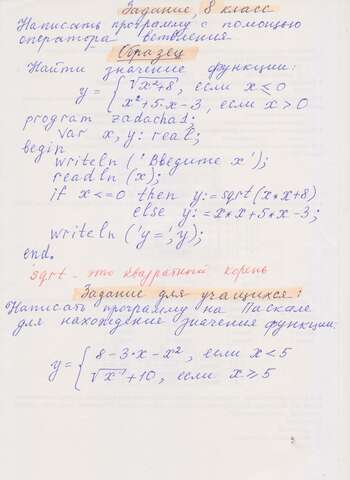 Задание, 8 класс
Написать программу с помощью
оператора ветвления.
Образец
Найти значение функции:
y = { √x²+8, если x ≤ 0
x²+5·x-3, если x > 0
program zadacha1;
var x, y: real;
begin
writeln ('Введите x');
readln (x);
if x<=0 then y:=sqrt(x*x+8)
else y:=x*x+5*x-3;
writeln ('y=', y);
end.
sqrt - это квадратный корень
Задание для учащихся:
Написать программу на Паскале
для нахождение значения функции:
y = { 8-3·x-x², если x < 5
√x+10, если x ≥ 5